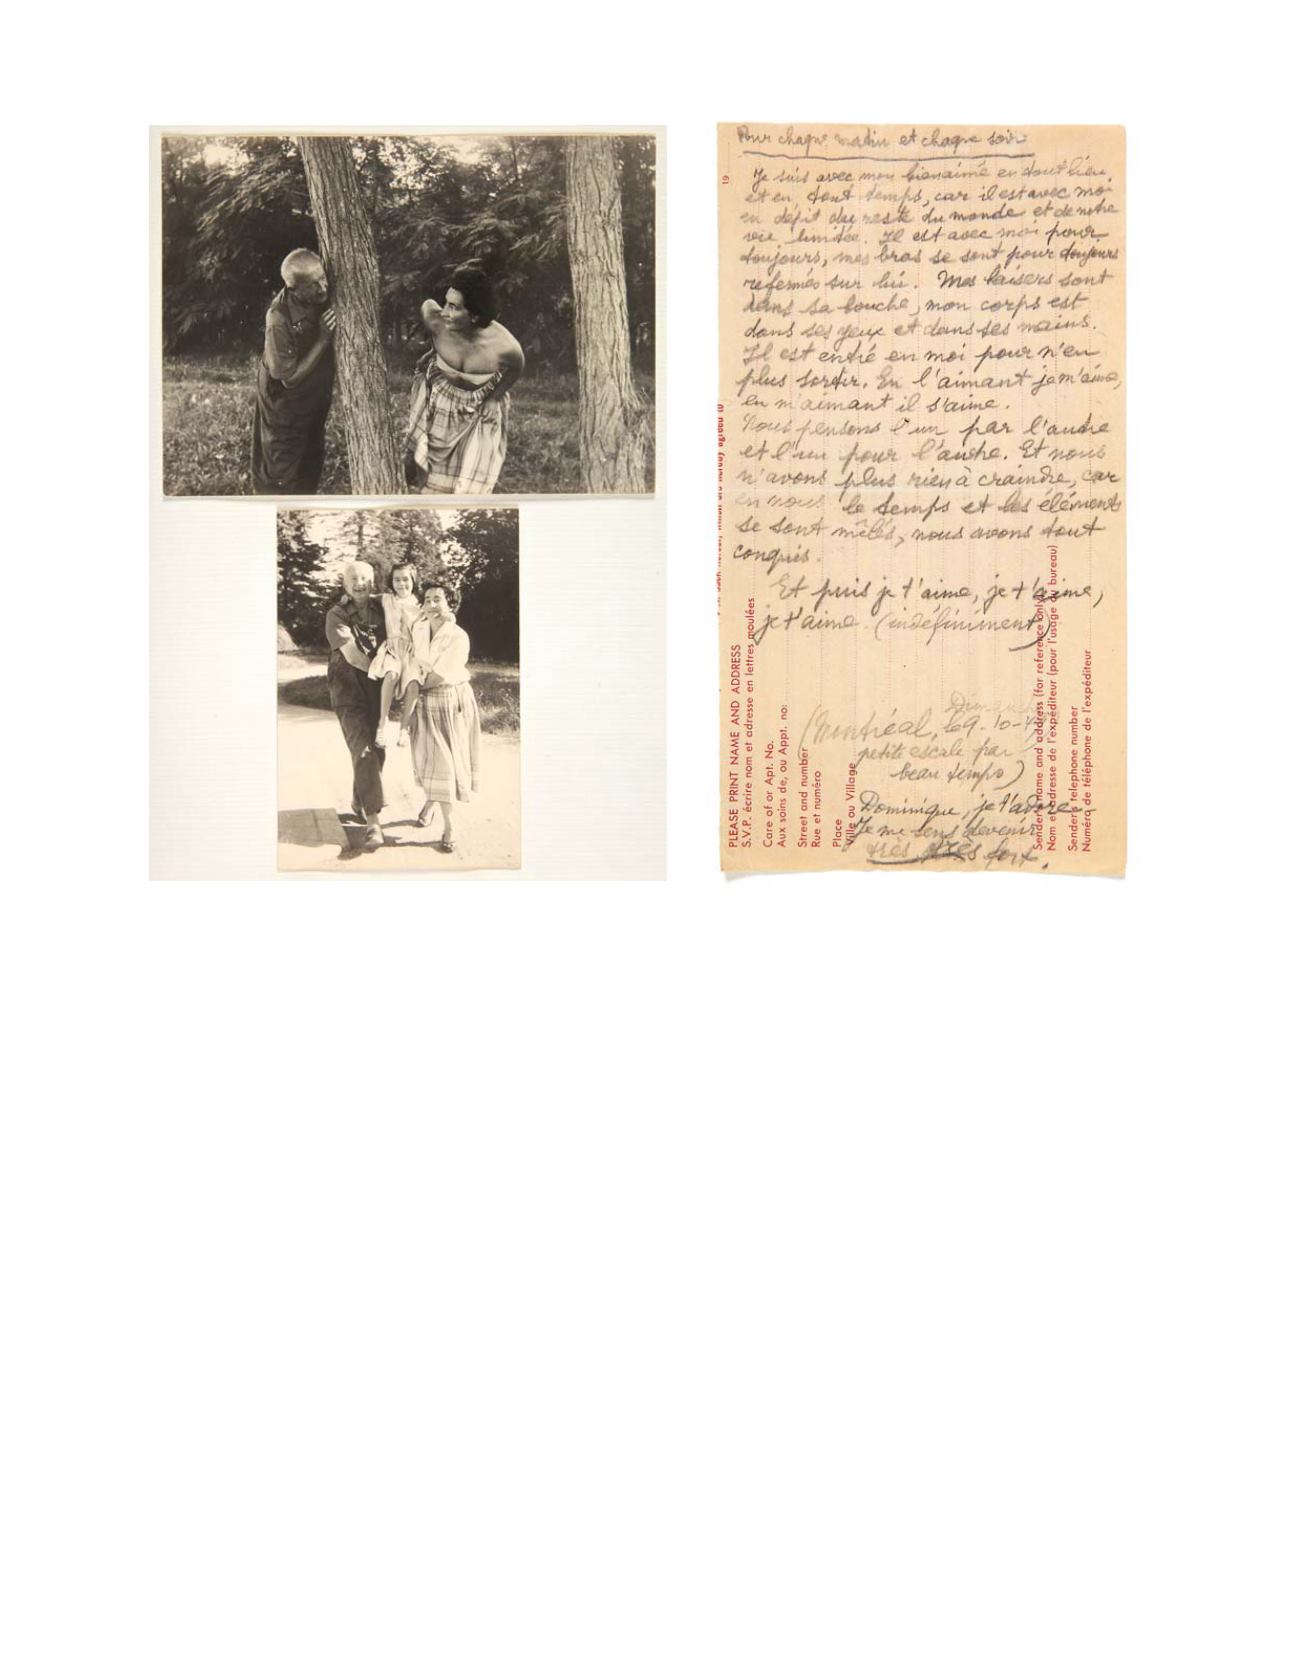 Pour chaque matin et chaque soir
Je suis avec mon bienaimé en tout lieu,
et en tout temps, car il est avec moi
en dépit du reste du monde et de notre
vie limitée. Il est avec moi pour
toujours, mes bras se sont pour toujours
refermés sur lui. Mes baisers sont
dans sa bouche, mon corps est
dans ses yeux et dans ses mains.
Il est entré en moi pour n'en
plus sortir. En l'aimant je m'aime,
en m'aimant il s'aime.
Nous pensons l'un par l'autre
et l'un pour l'autre. Et nous
n'avons plus rien à craindre, car
en nous le temps et les éléments
se sont mêlés, nous avons tout
conquis.
Et puis je t'aime, je t'aime,
je t'aime. (indéfiniment)
Dimanche
(Montréal, le 9-10-
petite escale par
beau temps)
Dominique, je t'adore
Je me sens devenir
très très fort.
19
PLEASE PRINT NAME AND ADDRESS
S.V.P. écrire nom et adresse en lettres moulées
Care of or Apt. No.
Aux soins de, ou Appt. no:
Street and number
Rue et numéro
Place
Ville ou Village
Sender's name and address (for reference only)
Nom et adresse de l'expéditeur (pour l'usage du bureau)
Sender's telephone number
Numéro de téléphone de l'expéditeur